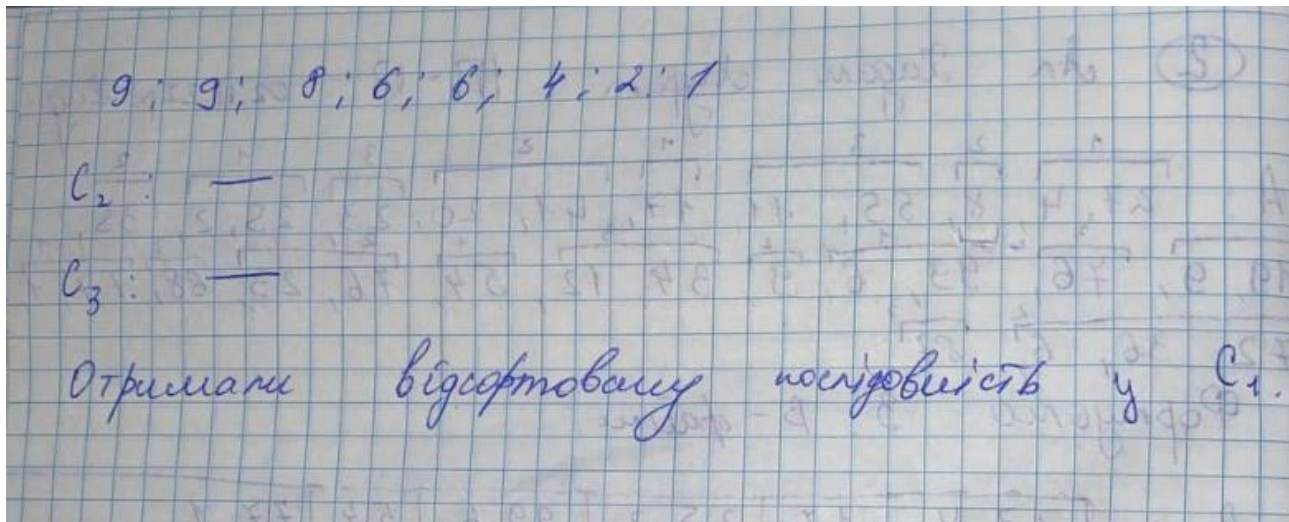 9; 9; 8; 6; 6; 4; 2; 1
C₂: —
C₃: —
Отримали відсортовану послідовність у C₁.